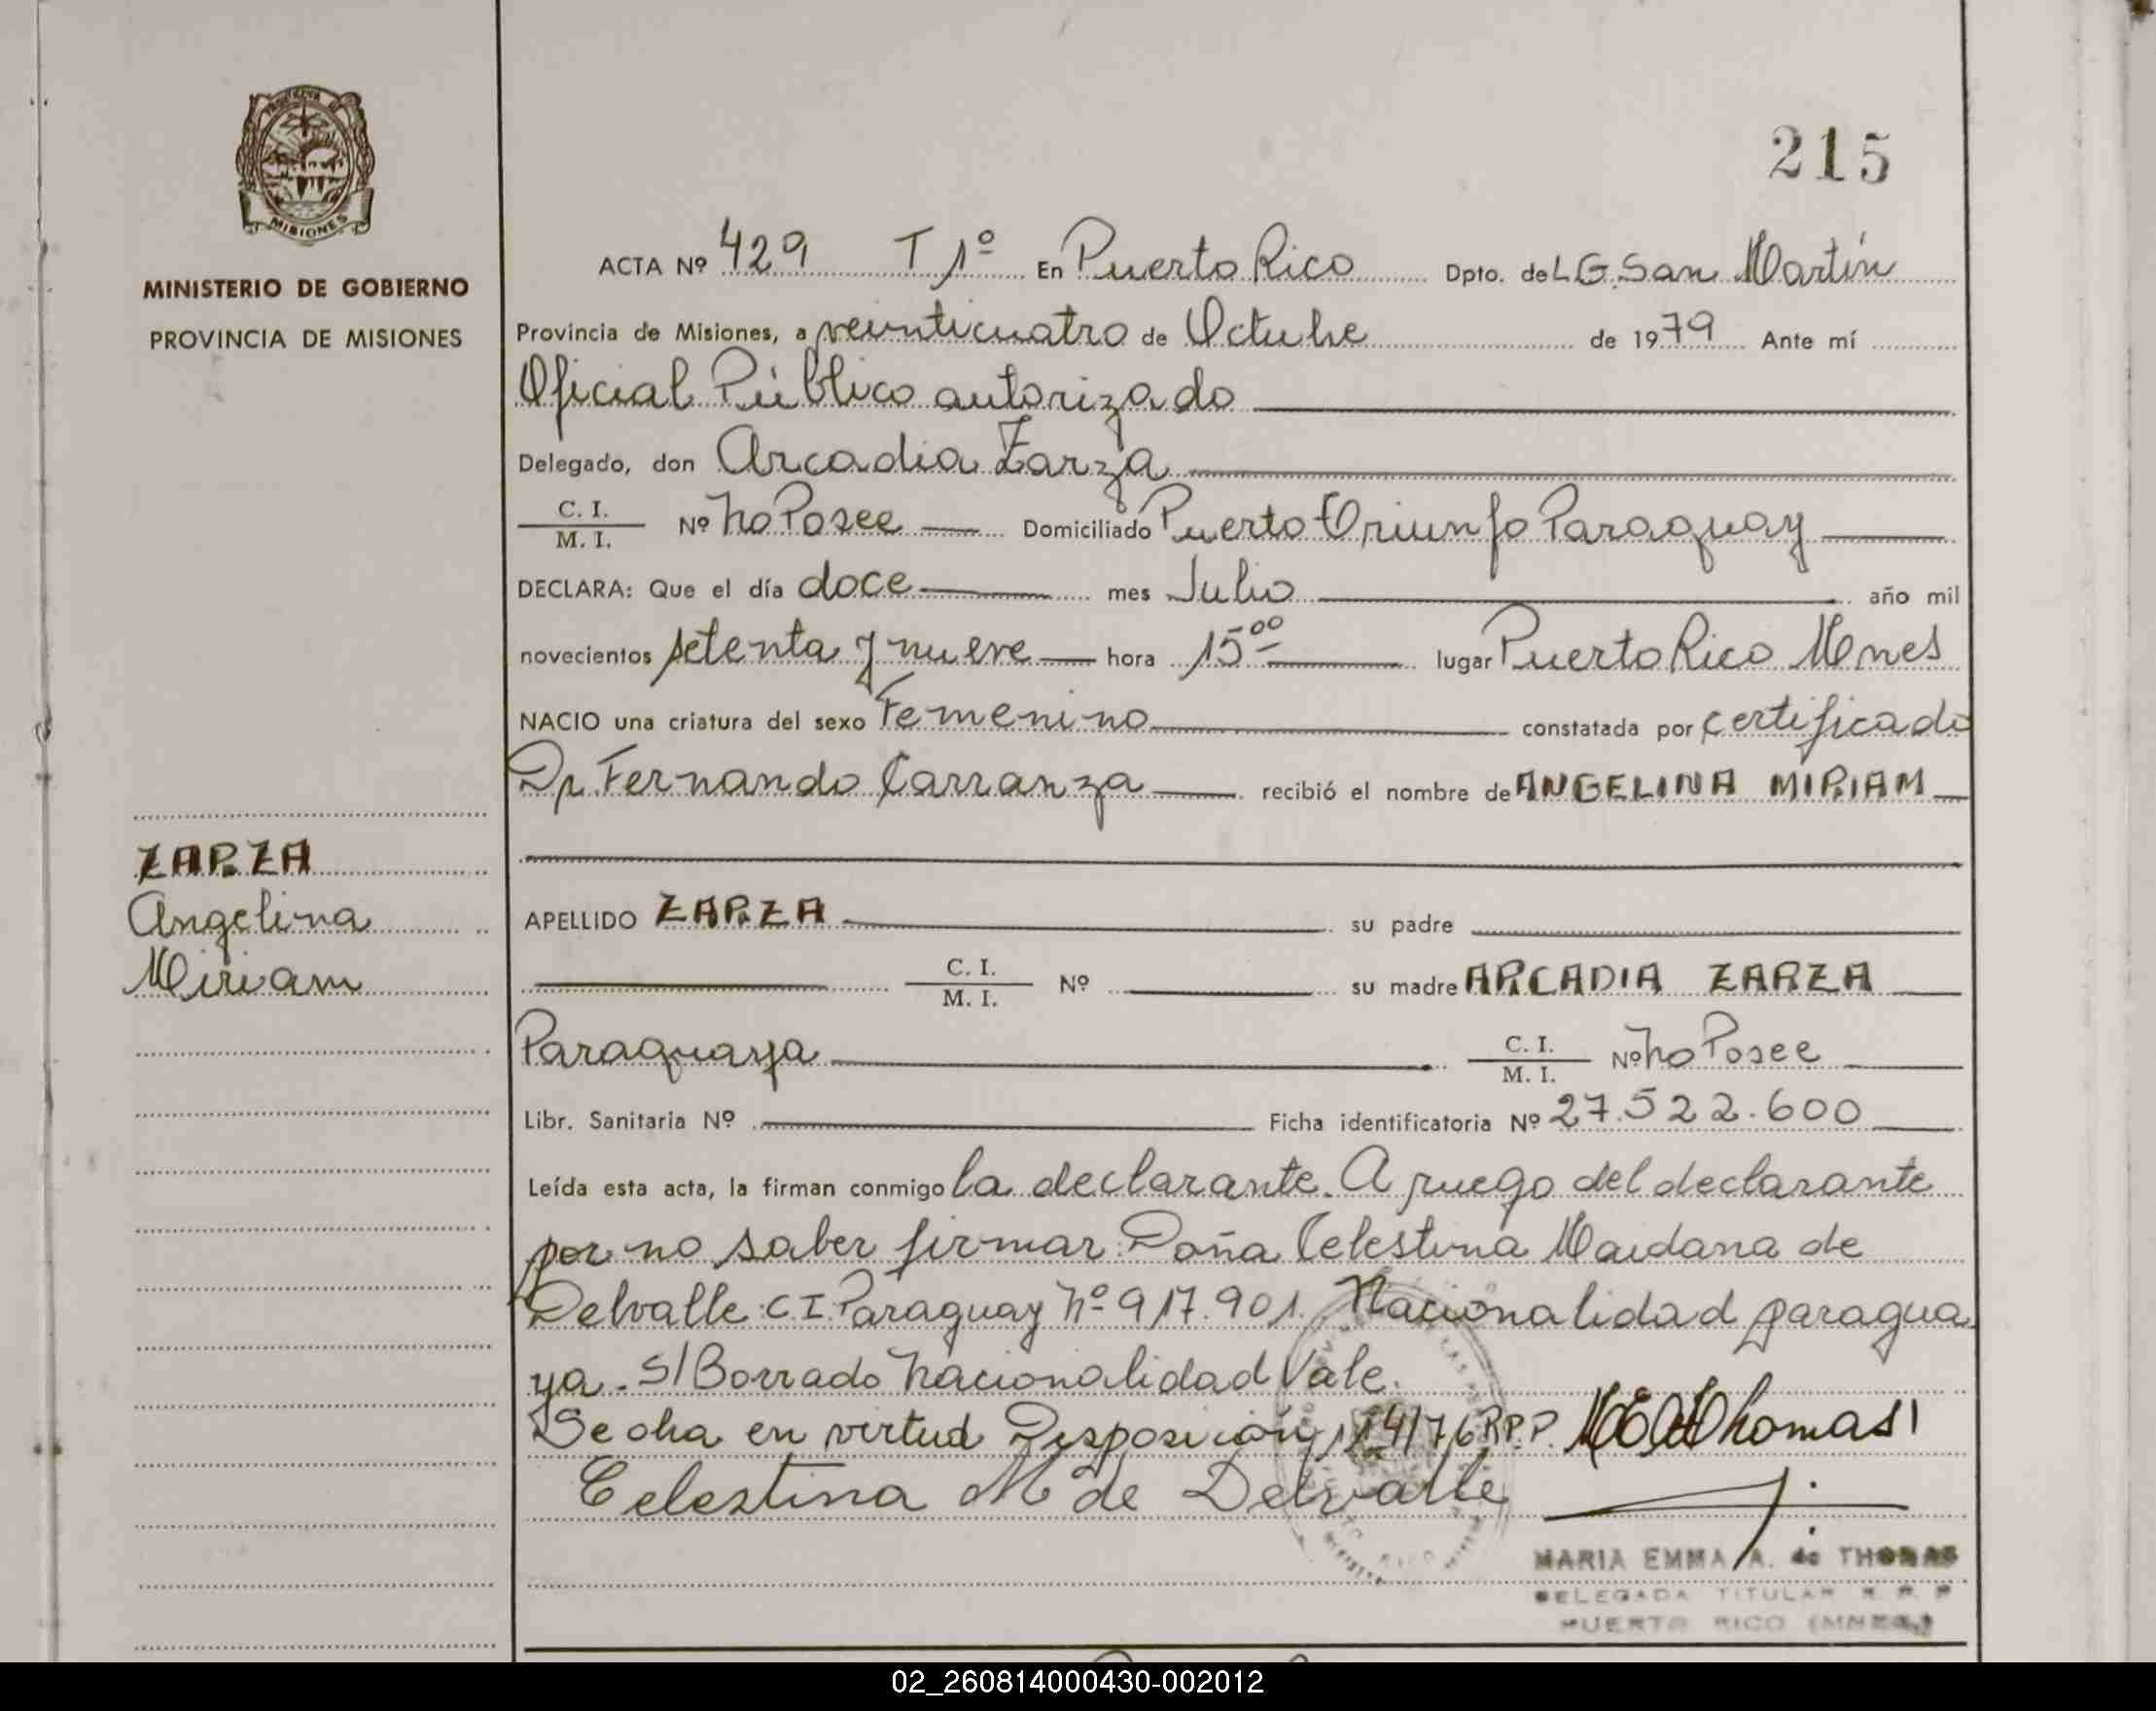 PROVINCIA DE
MISIONES
MINISTERIO DE GOBIERNO
PROVINCIA DE MISIONES
ZARZA
Angelina
Miriam
215
ACTA Nº 429 T 1º En Puerto Rico Dpto. de L G. San Martín
Provincia de Misiones, a veinticuatro de Octubre de 1979 Ante mí
Oficial Público autorizado
Delegado, don Arcadia Zarza
C. I. / M. I. Nº No Posee Domiciliado Puerto Triunfo Paraguay
DECLARA: Que el día doce mes Julio año mil
novecientos setenta y nueve hora 15 00 lugar Puerto Rico Mnes
NACIO una criatura del sexo Femenino constatada por certificado
Dr. Fernando Carranza recibió el nombre de ANGELINA MIRIAM
APELLIDO ZARZA su padre
C. I. / M. I. Nº su madre ARCADIA ZARZA
Paraguaya C. I. / M. I. Nº No Posee
Libr. Sanitaria Nº Ficha identificatoria Nº 27.522.600
Leída esta acta, la firman conmigo la declarante. A ruego del declarante
por no saber firmar: Doña Celestina Maidana de
Delvalle: C I. Paraguay Nº 917.901. Nacionalidad paragua
ya. S/ Borrado Nacionalidad Vale.
Se olra en virtud Disposición 114/76 R.P.P.
Celestina M de Delvalle
MARIA EMMA A. de THOMAS
DELEGADA TITULAR R. P. P
PUERTO RICO (MNES.)
02_260814000430-002012